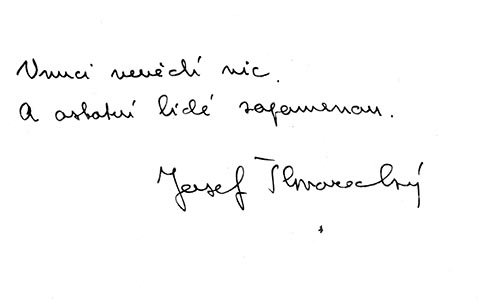 Vnuci nevědí nic.
A ostatní lidé zapomenou.
Josef Škvorecký